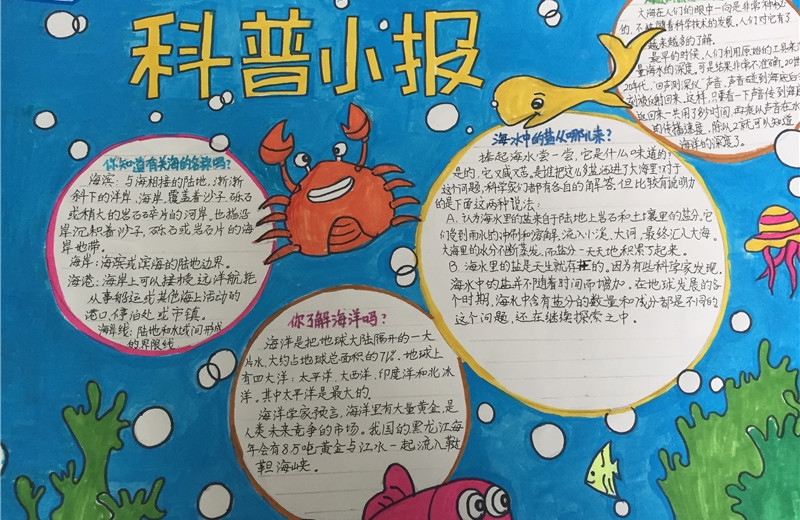 科普小报
你知道有关海的名称吗?
海滨:与海相接的陆地,渐渐
斜下的洋岸、海岸,覆盖着沙子、砾石
或稍大的岩石碎片的河岸,也指沿
岸沉积着沙子、砾石或岩石片的海
岸地带。
海岸:海滨或滨海的陆地边界。
海港:海岸上可以接接远洋航轮
从事船运或其他海上活动的
港口、停泊处或市镇。
海岸线:陆地和水域间形成
的界限线
你了解海洋吗?
海洋是把地球大陆隔开的一大
片水,大约占地球总面积的71%。地球上
有四大洋:太平洋、大西洋、印度洋和北冰
洋。其中太平洋是最大的。
海洋学家预言,海洋里有大量黄金,是
人类未来竞争的市场。我国的黑龙江每
年会有8万吨黄金与江水一起流入鞑
靼海峡。
海水中的盐从哪儿来?
捧起海水尝一尝,它是什么味道的?
是的,它又咸又苦。是谁把这么多盐洒进了大海里?对于
这个问题,科学家们都有各自的解答。但比较有说明力
的是下面这两种说法:
A.认为海水里的盐来自于陆地上岩石和土壤里的盐分,它
们受到雨水的冲刷和溶解,流入小溪、大河,最终汇入大海。
大海里的水分不断蒸发,而盐分一天天地积累了起来。
B.海水里的盐是天生就存在的。因为有些科学家发现,
海水中的盐并不随着时间而增加。在地球发展的各
个时期,海水中含有盐分的数量和成分都是不同的
这个问题,还在继续探索之中。
大海在人们的眼中一向是非常神秘
的,不过随着科学技术的发展,人们对它有了
越来越多的了解。
最早的时候,人们利用原始的工具来
量海水的深度,可是结果非常不准确。20世
20年代,回声测深仪。声音,声音碰到海底后
到被反射回来,这样,只要看一下声音传到海底
返回来一共用了多少时间,再乘以声音在水
的传播速度,除以2就可以知道
海洋的深度了。